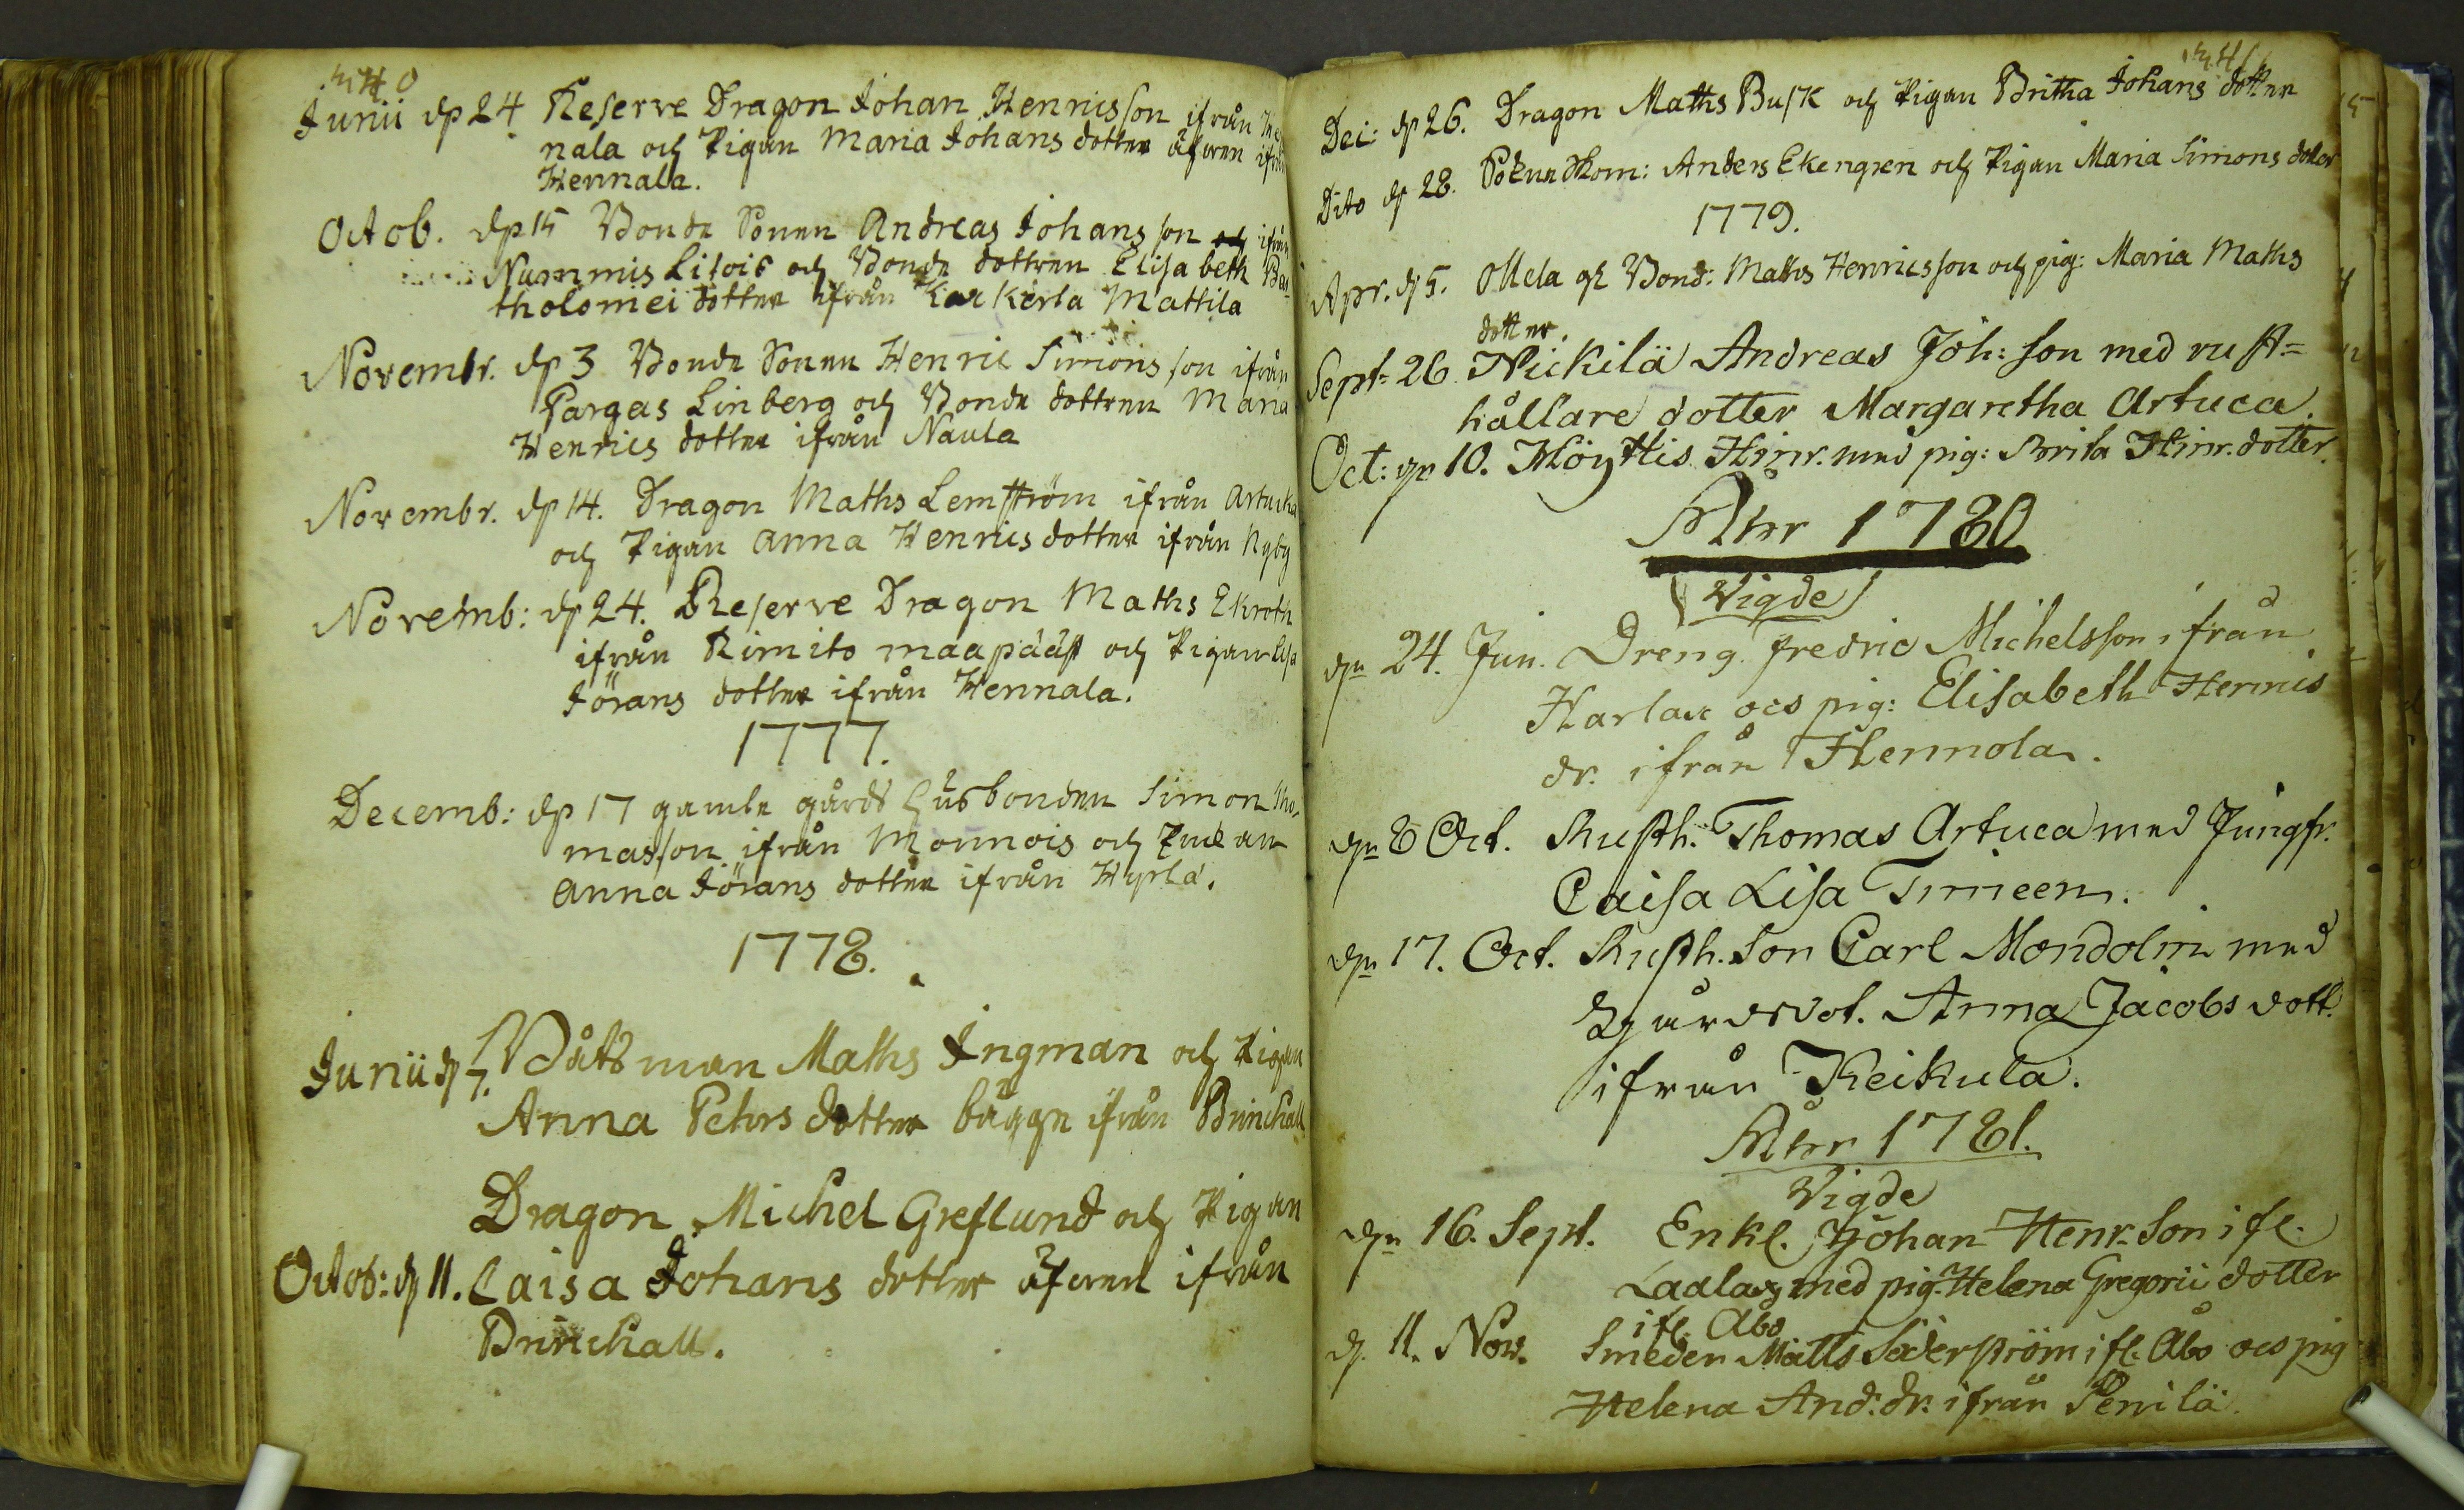 Junii dn 24 Reserve Dragon Johan Henricsson ifrån He
nala och Pigan Maria Johans dotter äfwen ifrån
Hennala.
Octob. dn 15 Bonde Sonen Andreas Johansson och ifrån
Nummis Litois och Bonde dottren Elisabeth Bar
tholomei dotter ifrån Karkerla Mattila
Novembr. dn 3 Bonde Sonen Henric Simonsson ifrån
Pargas Linberg och Bonde dottren Maria
Henrics dotter ifrån Naula
Novembr. dn 14. Dragon Maths Lemström ifrån Artucka
och Pigan Anna Henrics dotter ifrån Nyby
Novemb: dn 24. Reserve Dragon Maths Ekroth
ifrån Rimito maapääst och Pigan Lisa
Jörans dotter ifrån Hennala.
1777.
Decemb: dn 17 gamle gårds husbonden Simon Tho,
masson ifrån Monnois och Enkan
Anna Jörans dotter ifrån Hyrla.
1778.
Junii dn 7. Båtsman Maths Ingman och Pigan
Anna Pehrs dotter bägge ifrån Brinchall
Dragon Michel Greflund och Pigan
Octob: dn 11. Caisa Johans dotter äfwen ifrån
Brinchall.
Dec: dn 26. Dragon Maths Busk och Pigan Britha Johans dotter
Dito dn 28. Anders Ekengren och Pigan Maria Simons dotter
1779.
Apr. dn 5. Mela Bond: Maths Henricsson och pig: Maria Maths
dotter.
Sept. 26 Nickilä Andreas Joh: son med rust=
hållare dotter Margaretha Artuca.
Oct: dn 10. Höyttis Hinr. med pig: Brita Hinr. dotter.
Åhr 1780
Vigde
dn 24. Jun. Dreng fredric Michelsson ifrån
Harlax ocs pig: Elisabeth Henrics
dr. ifrån Hennola.
dn 8 Oct. Rusth. Thomas Artuca med Jungfr.
Caisa Lisa Timeen.
dn 17. Oct. Rusth. Son Carl Mondolin med
Anna Jacobs dott.
ifrån Keikula.
Åhr 1781.
Vigde
dn 16. Sept. Enkl. Johan Henr. Son ifr.
med pig. Helena Gregorii dotter
ifr. Åbo
d. 11. Nov. Smeden Matts Söderström ifr. Åbo ocs pig
Helena And: dr. ifrån Penilä.